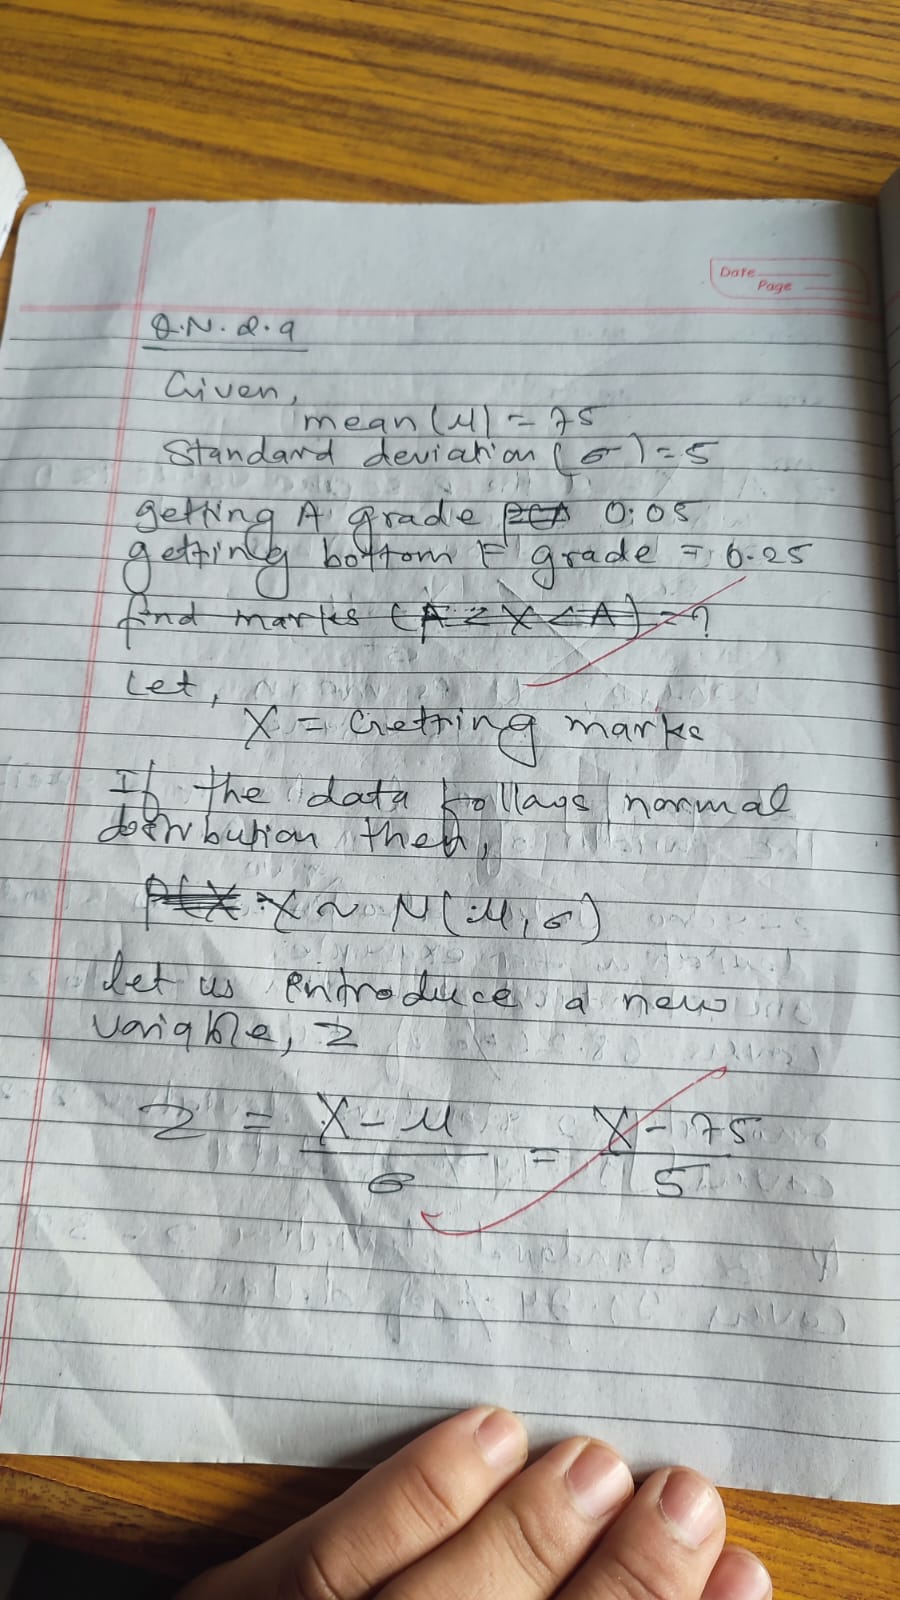 Date
Page
Q.N. 2.9
Given,
mean (μ) = 75
Standard deviation (σ) = 5
getting A grade 0.05
getting bottom F grade = 0.25
find marks (A < X < A) = ?
Let,
X = Getting marks
If the data follows normal
distribution then,
X ~ N(μ, σ)
let us introduce a new
variable, z
z = X - μ / σ = X - 75 / 5